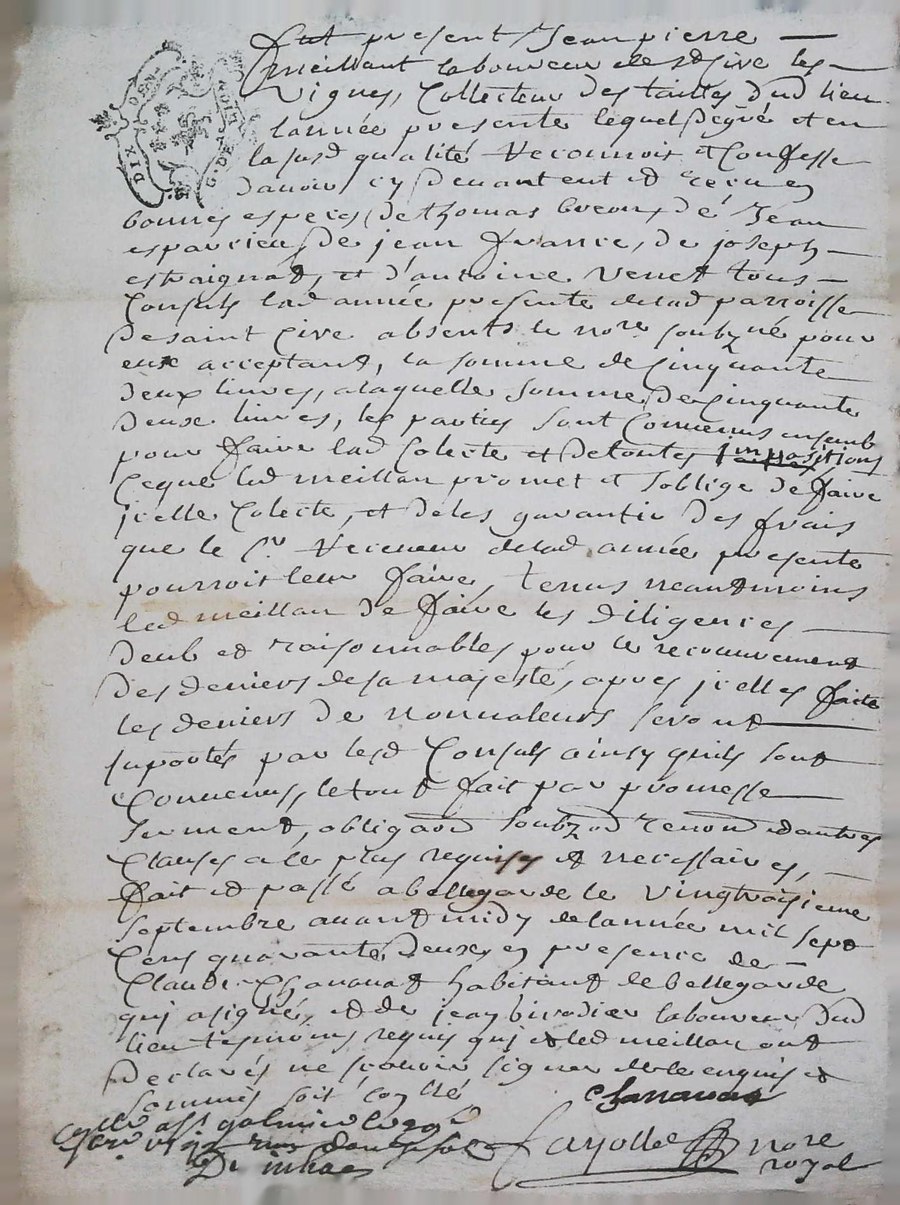 DIX DEN.
G. DE LION
fut present Jean pierre
meillant laboureur de St Cire les
vignes, Collecteur des tailles dud lieu
lannée presente lequel degré et en
la susd qualité Reconnoit et Confesse
davoir cy devant eut et receu en
bonnes especes, de thomas breons, de Jean
esparvieu, de jean france, de joseph
estraignat, et d'antoine venet tous
Consuls lad année presente delad parroisse
de saint Cire absents le nore soubzné pour
eux acceptant, la somme de Cinquante
deux livres, a laquelle somme de Cinquante
deux livres, les parties sont Convenus ensemb
pour faire lad Colecte et de toutes Impositions
Ceque led meillan promet et soblige de faire
jcelle Colecte, et deles garantir des frais
que le Sr Receveur delad année presente
pourroit leur faire, tenus neantmoins
led meillan de faire les diligences
deub et raisonnables pour le recouvrement
des deniers de sa majesté, apres jcelles faite
les deniers de nonvaleurs seront
suportés par lesd Consuls ainsy quils sont
Convenus, le tout fait par promesse
serment, obligaon soubzon renon et autres
Clauses a le plus requises et necessaires,
fait et passé a bellegarde le vingtroisieme
septembre avant midy de lannée mil sept
Cens quarante deux, en presence de
Claude Chanavat habitant de bellegarde
qui a signé, et de jean birodier laboureur dud
lieu tesmoins requis qui et led meillan ont
declarés ne scavoir signer de ce enquis et
sommés soit Conllé
Chanavat
Fayolle nore
royal